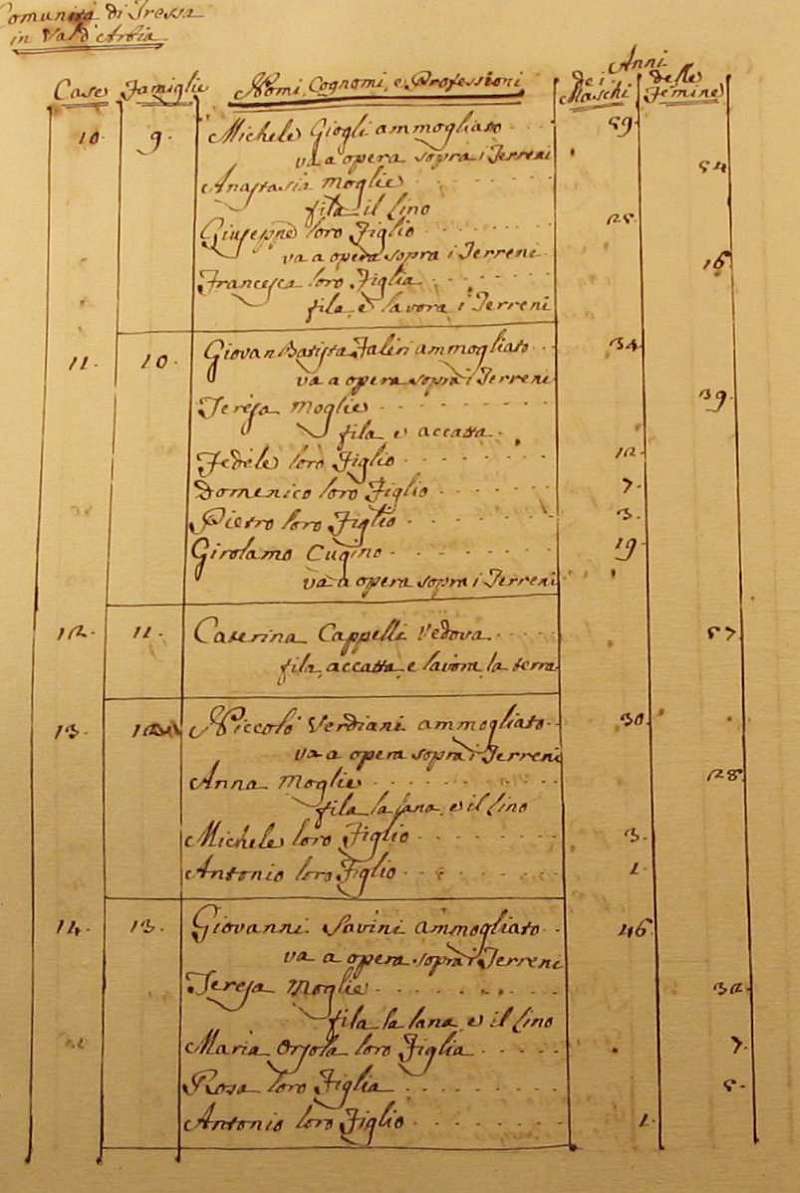 Comunità di Tressa
in Val d'Arbia
Anni
Case Famiglie Nomi, Cognomi, e Professioni dei Maschi delle Femine
10. 9. Michele Giogli ammogliato 59
va a opera sopra i Terreni
Anastasia Moglie 54
fila il lino
Giuseppe loro Figlio 25
va a opera sopra i Terreni
Francesca loro Figlia 16
fila e lavora i Terreni
11. 10. Giovan Batista Falisi ammogliato 34
va a opera sopra i Terreni
Teresa Moglie 39
fila e accatta
Fedele loro Figlio 12
Domenico loro Figlio 7
Pietro loro Figlio 3
Girolamo Cugino 19
va a opera sopra i Terreni
12. 11. Caterina Cappelli Vedova 57
fila, accatta, e lavora la terra
13. 12 Niccolò Verdiani ammogliato 30
va a opera sopra i Terreni
Anna Moglie 28
fila la lana, e il lino
Michele loro Figlio 3
Antonio loro Figlio 1
14. 13. Giovanni Savini ammogliato 46
va a opera sopra i Terreni
Teresa Moglie 32
fila la lana, e il lino
Maria Orsola loro Figlia 7
Rosa loro Figlia 5
Antonio loro Figlio 1